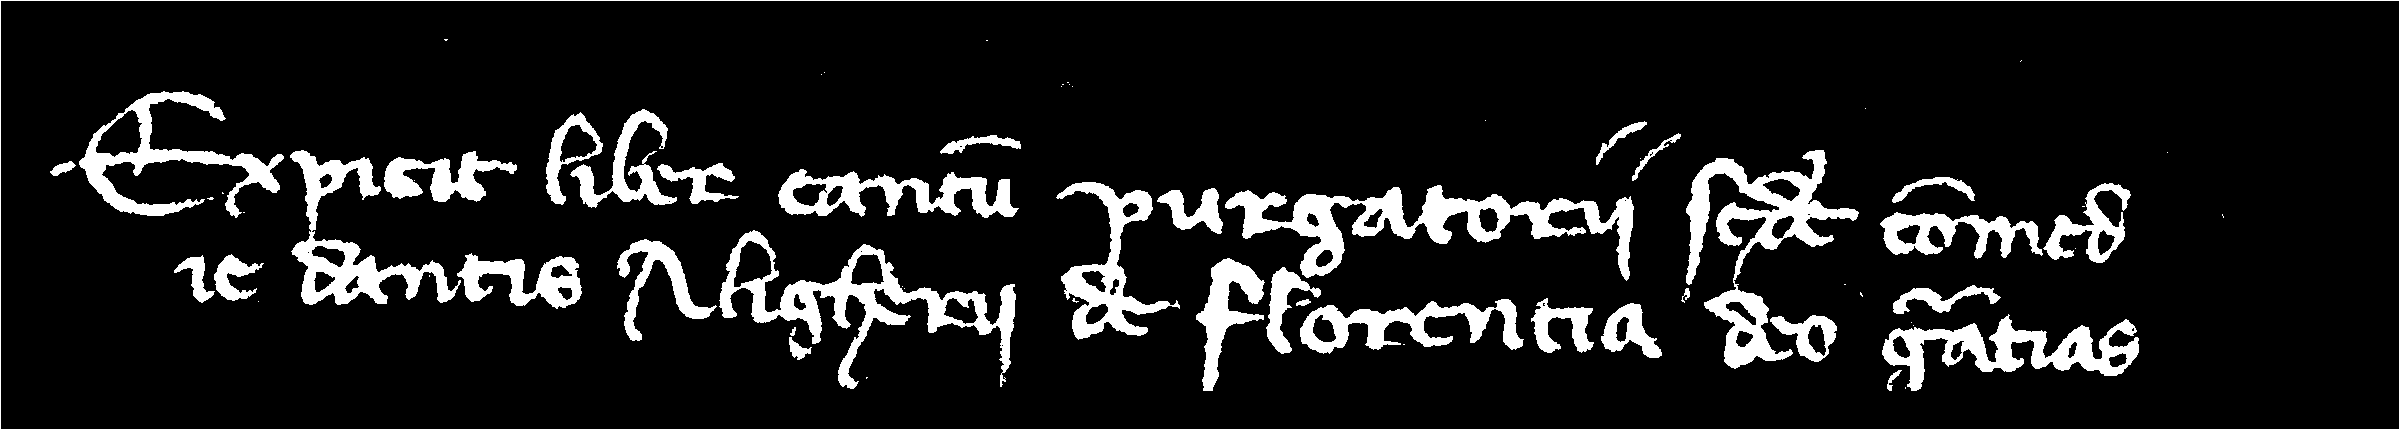 Expicit liber cantū purgatorij scde cōmed
ie dantis Aligherij de florentia deo gr̃atias